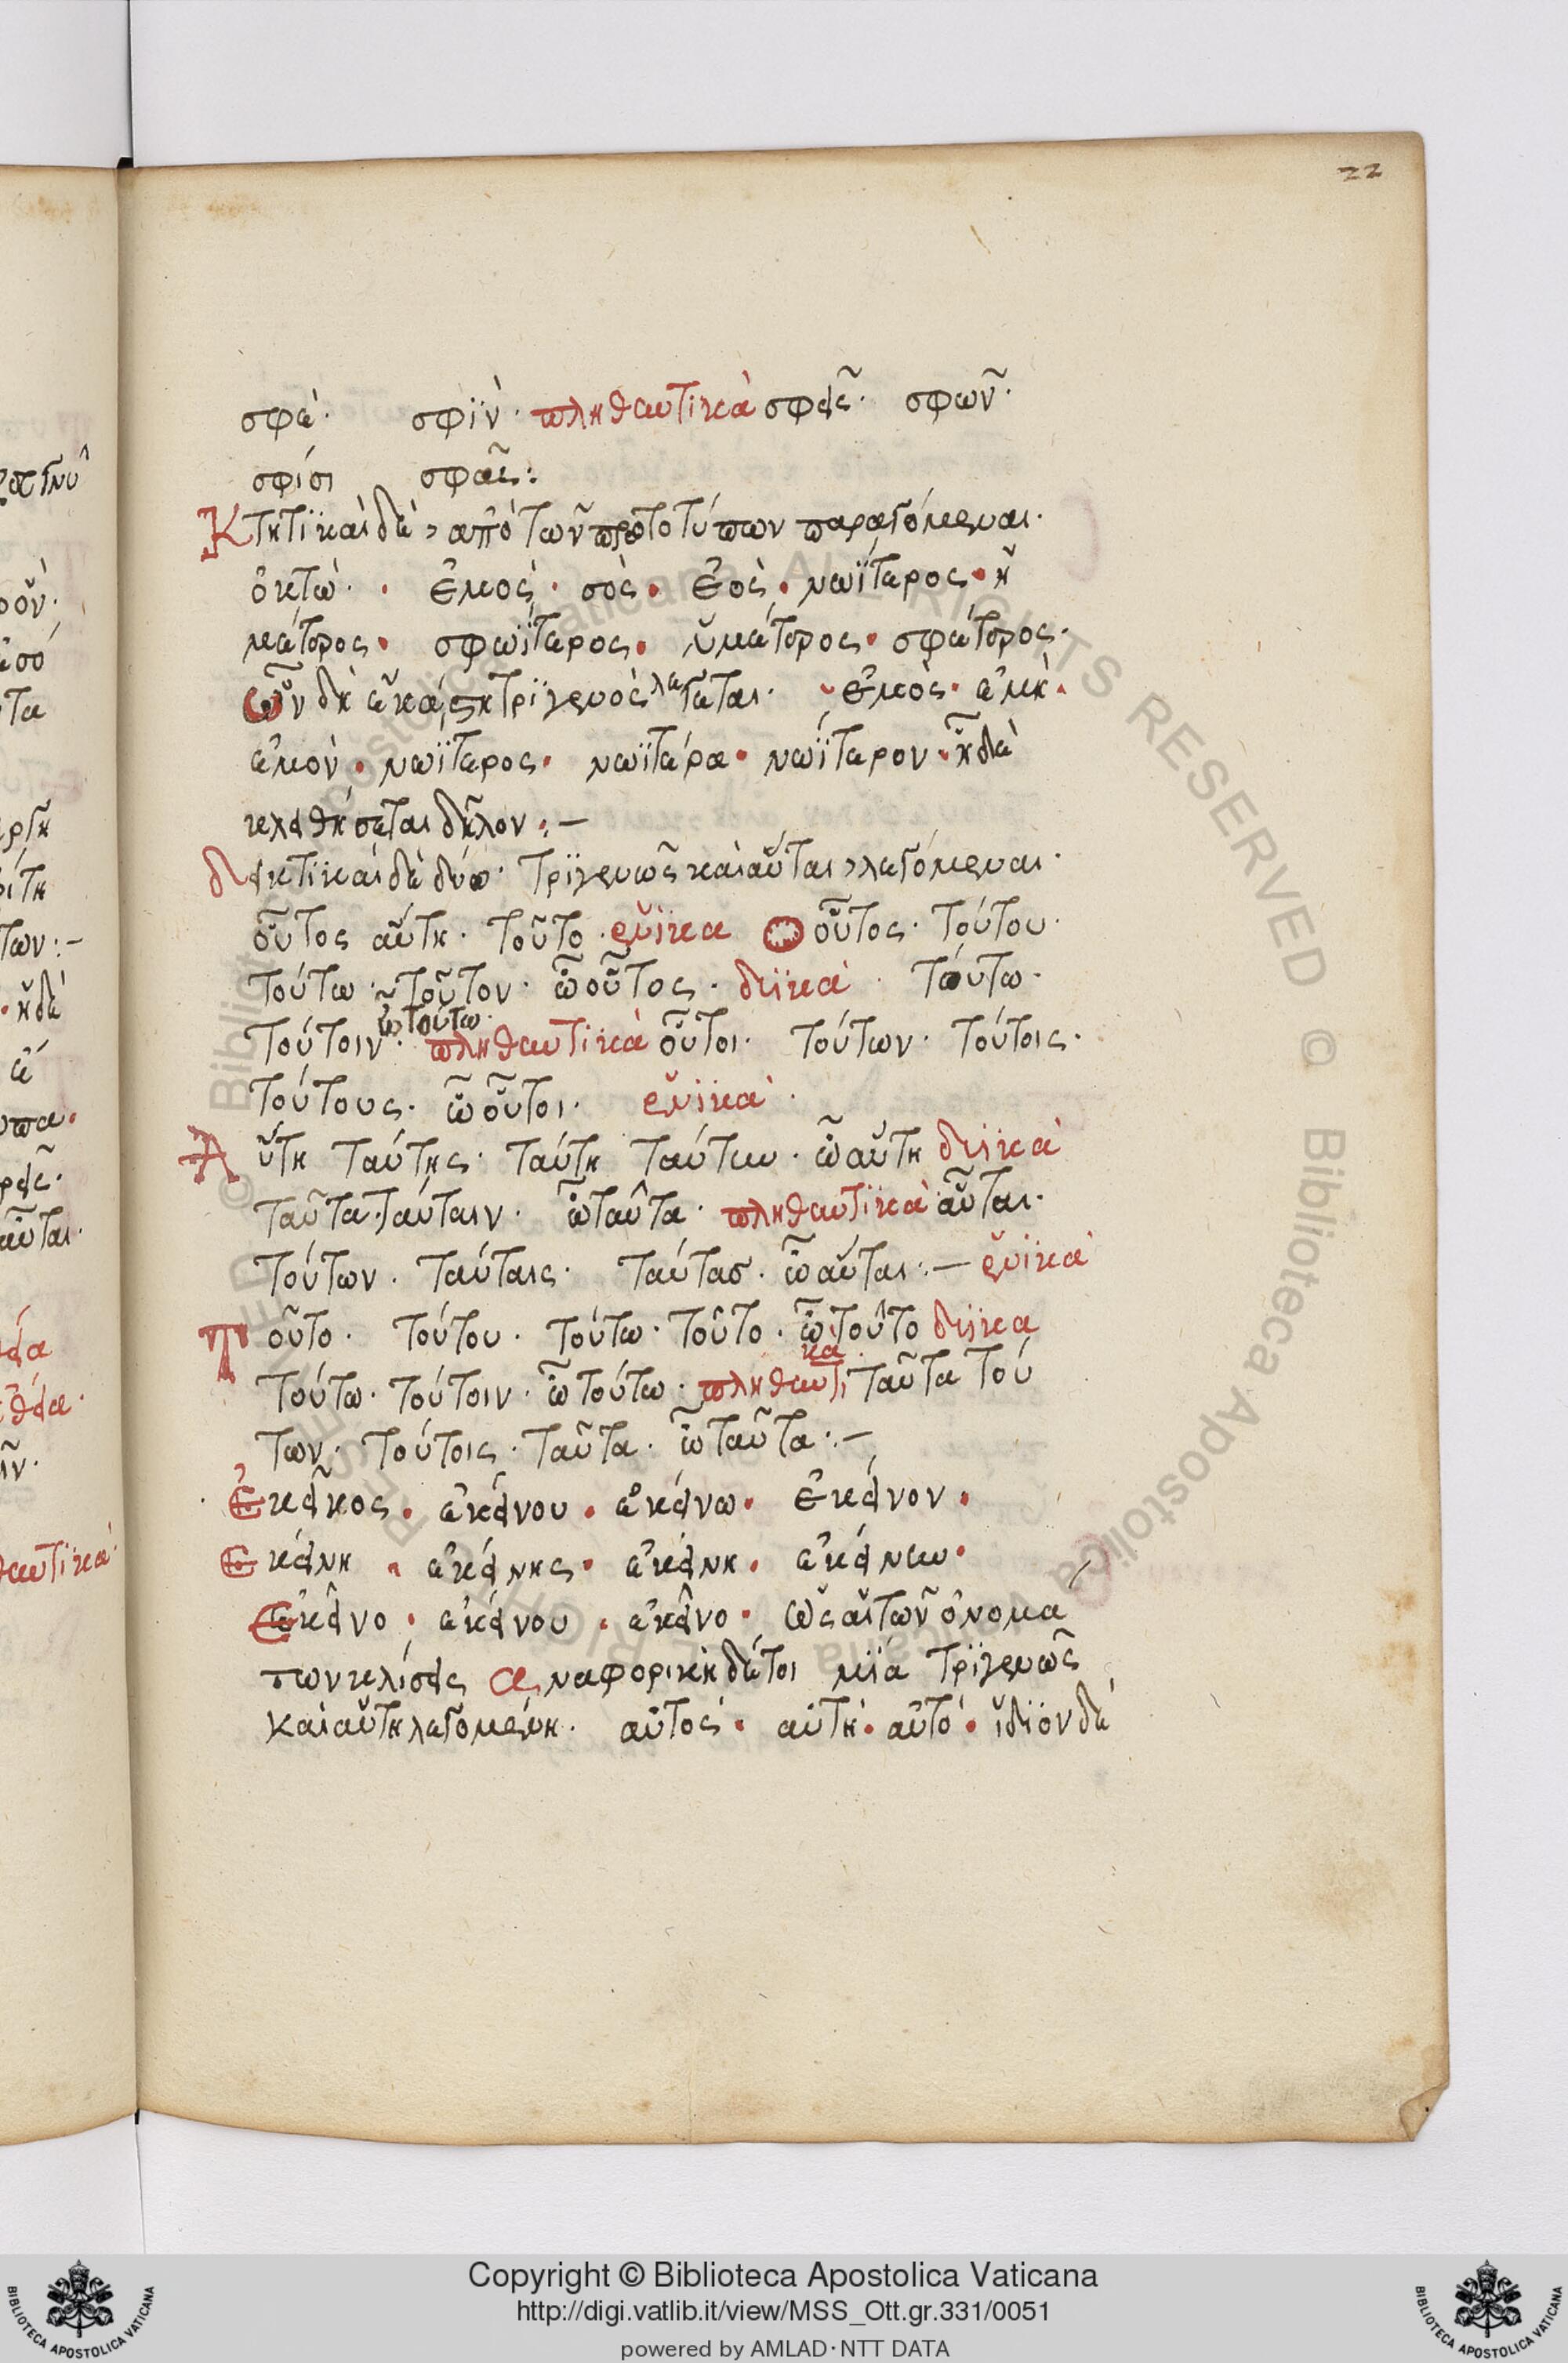 22
σφὲ· σφϊν· πληθυντικὰ σφεῖς· σφῶν·
σφίσι σφᾶς:
Κτητϊκαὶ δὲ, ἀπὸ τῶν πρωτοτύπων παραγόμεναι·
ὀκτὼ· ἐμὸς· σὸς· ἐὸς· νωΐτερος· ἡ
μέτερος· σφωΐτερος· ὑμέτερος· σφέτερος·
ὧν δὴ ἑκάστη τρϊγενὸς λέγεται· ἐμὸς· ἐμὴ·
ἐμὸν· νωΐτερος· νωϊτέρα· νωΐτερον· ᾗ δὲ
κληθήσεται δῆλον:—
δεικτϊκαὶ δὲ δύο· τρϊγενῶς καὶ αὗται, λεγόμεναι·
οὗτος αὕτη· τοῦτο· ἑνϊκα οὗτος· τούτου·
τούτω· τοῦτον· ὦ οὗτος· δυϊκὰ· τούτω·
ὦ τούτω·
τούτοιν· πληθυντικὰ οὗτοι· τούτων· τούτοις·
τούτους· ὦ οὗτοι· ἑνϊκὰ·
Αὕτη ταύτης· ταύτη ταύτην· ὦ αὕτη δυϊκὰ
ταῦτα· ταύταιν· ὦ ταῦτα· πληθυντϊκὰ αὗται·
τούτων· ταύταις· ταύτασ· ὦ αὗται:— ἑνϊκὰ
Τοῦτο· τούτου· τούτω· τοῦτο· ὦ τοῦτο δυϊκα
κὰ
τούτω· τούτοιν· ὦ τούτω· πληθυντι ταῦτα τού
των· τούτοις· ταῦτα· ὦ ταῦτα:—
Ἐκεῖνος· ἐκείνου· ἐκείνω· ἐκεῖνον·
Ἐκείνη· ἐκείνης· ἐκείνη· ἐκείνην·
Ἐκεῖνο· ἐκείνου· ἐκεῖνο· ὡς αἱ τῶν ὀνομα
των κλίσεις ἀναφορικὴ δέτοι μϊά τρϊγενῶς
καὶ αὕτη λεγομένη· αὐτὸς· αὐτὴ· αὐτὸ· ἴδϊον δὲ
Copyright © Biblioteca Apostolica Vaticana
http://digi.vatlib.it/view/MSS_Ott.gr.331/0051
powered by AMLAD·NTT DATA